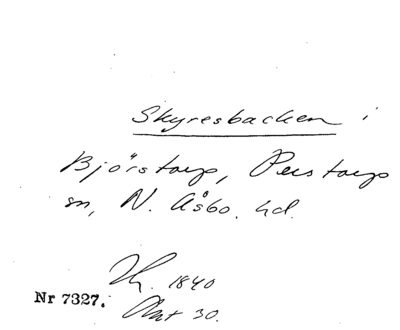 Skyresbacken i
Björstorp, Perstorp
sn, N. Åsbo hd.
Th. 1840
Nr 7327.
30.